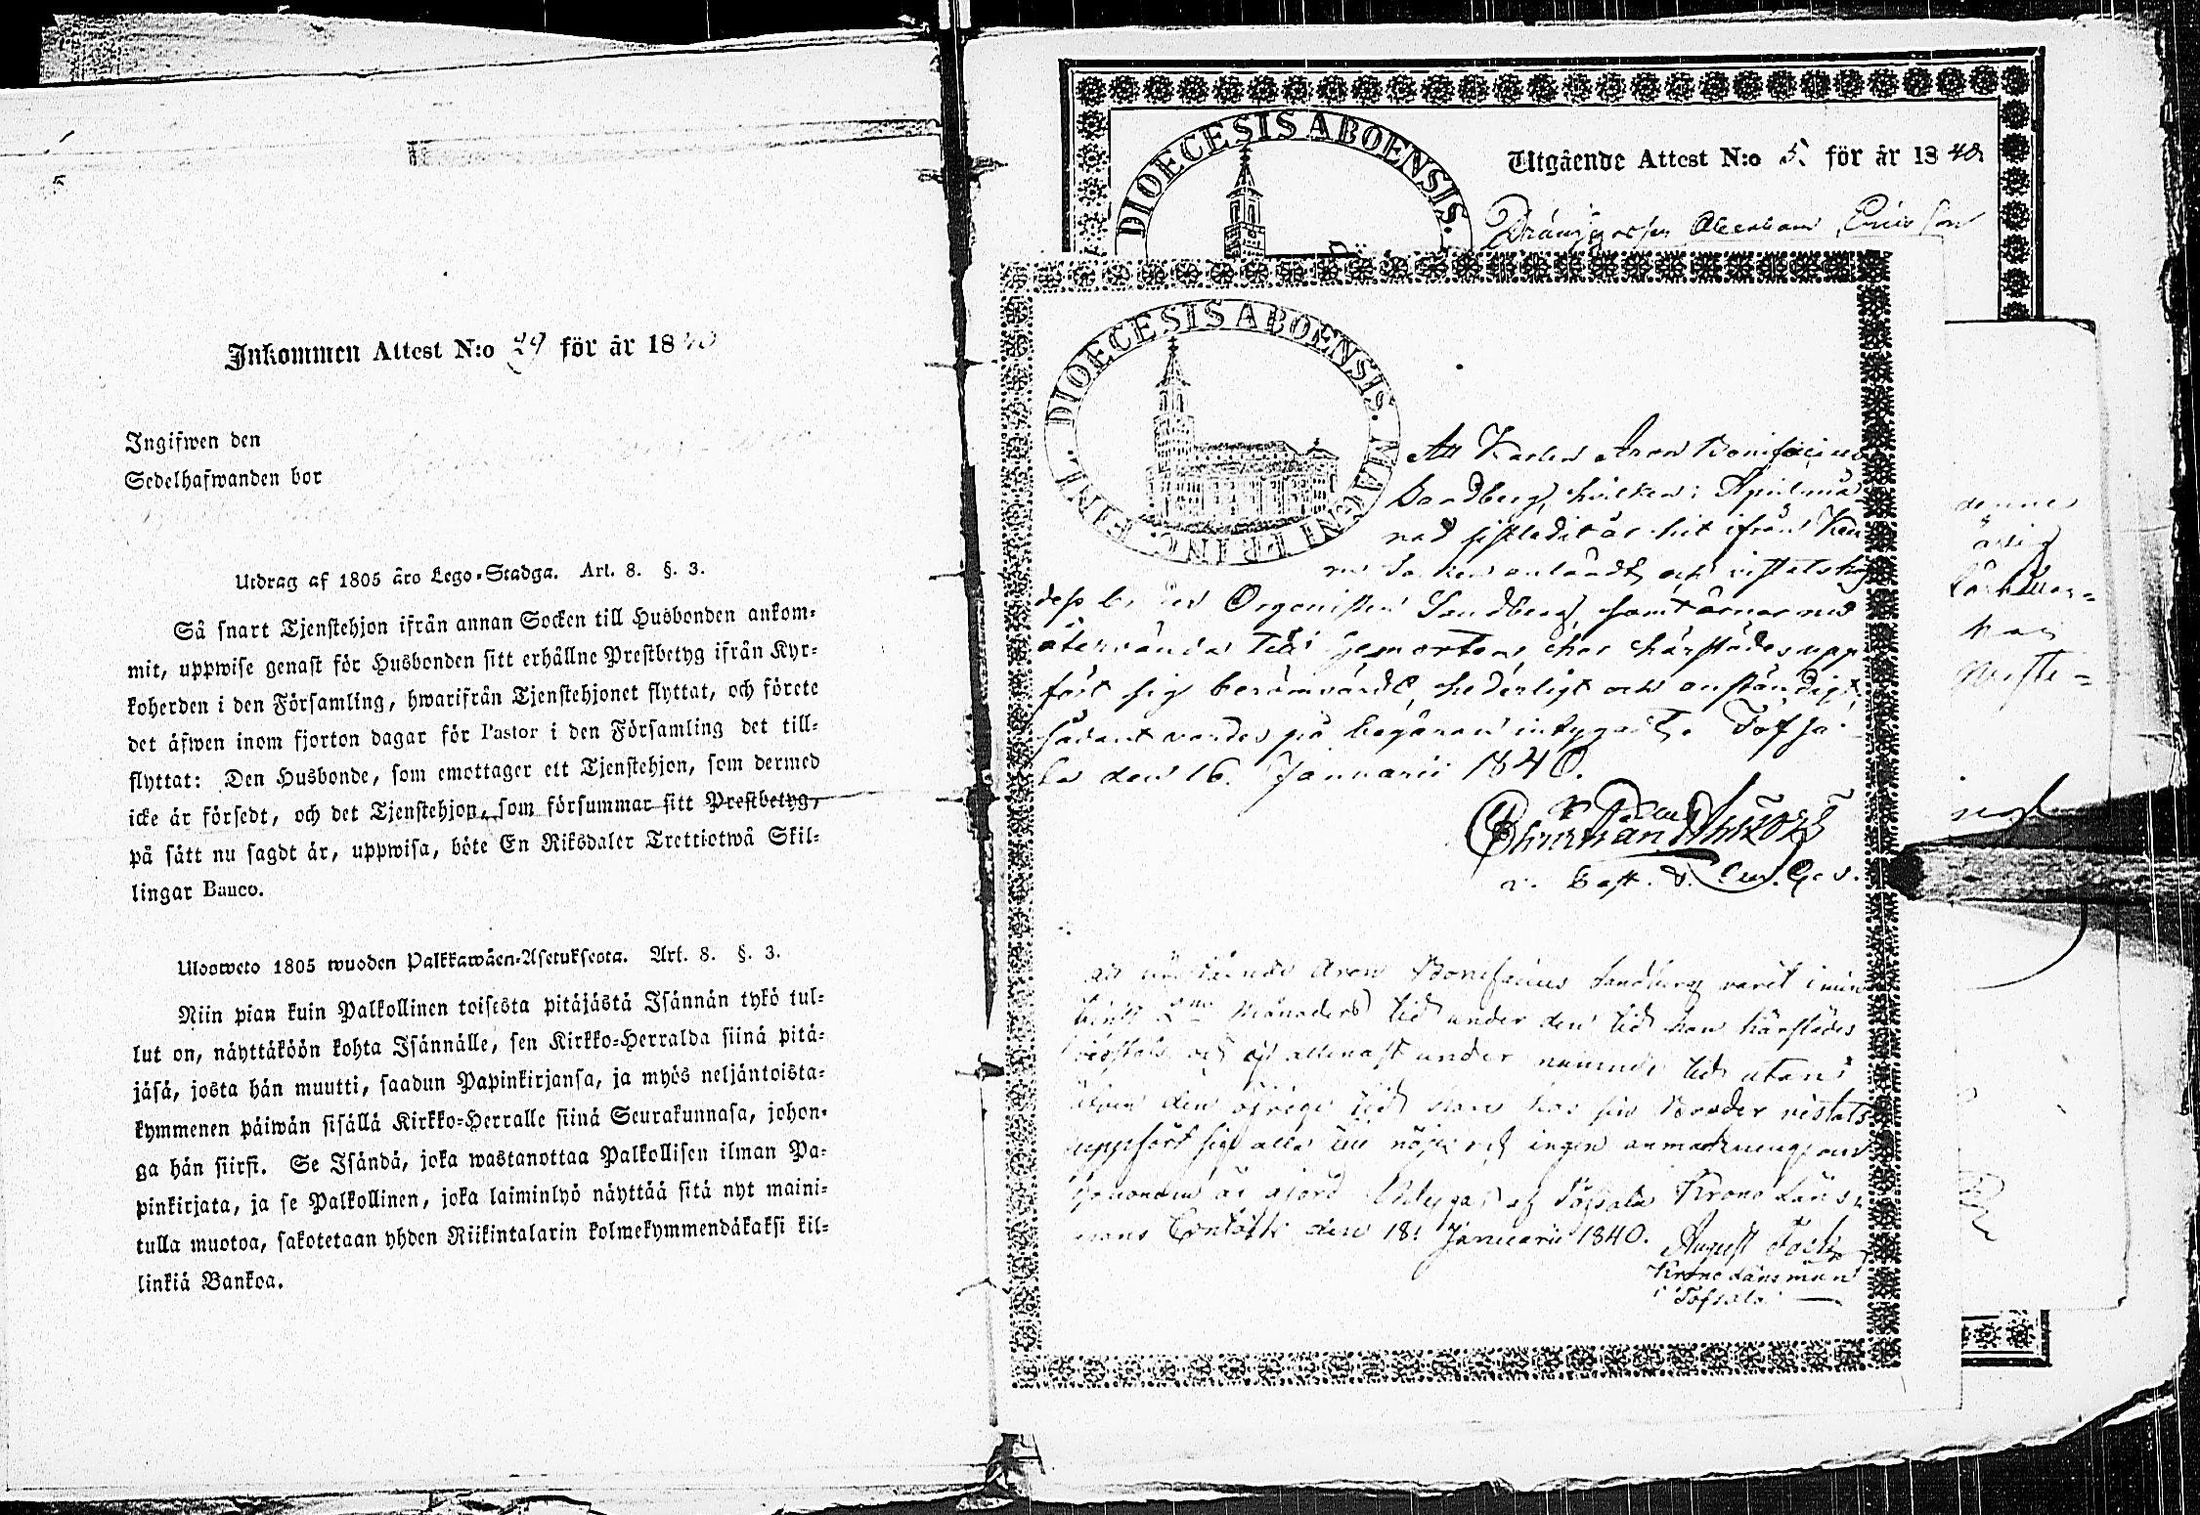 Inkommen Attest N:o 29 för år 1840
Ingifwen den
Sedelhafwanden bor
Utdrag af 1805 års Lego-Stadga. Art. 8. §. 3.
Så snart Tjenstehjon ifrån annan Socken till Husbonden ankom-
mit, uppwise genast för Husbonden sitt erhållne Prestbetyg ifrån Kyr-
koherden i den Församling, hwarifrån Tjenstehjonet flyttat, och förete
det äfwen inom fjorton dagar för Pastor i den Församling det till-
flyttat: Den Husbonde, som emottager ett Tjenstehjon, som dermed
icke är försedt, och det Tjenstehjon, som försummar sitt Prestbetyg,
på sätt nu sagdt är, uppwisa, böte En Riksdaler Trettiotwå Skil-
lingar Banco.
Ulosweto 1805 wuoden Palkkawäen-Asetuksesta. Art. 8. §. 3.
Niin pian kuin Palkollinen toisesta pitäjästä Isännän tykö tul-
lut on, näyttäköön kohta Isännälle, sen Kirkko-Herralda siinä pitä-
jäsä, josta hän muutti, saadun Papinkirjansa, ja myös neljäntoista-
kymmenen päiwän sisällä Kirkko-Herralle siinä Seurakunnasa, johon-
ga hän siirsi. Se Isändä, joka wastanottaa Palkollisen ilman Pa-
pinkirjata, ja se Palkollinen, joka laiminlyö näyttää sitä nyt maini-
tulla muotoa, sakotetaan yhden Riikintalarin kolmekymmendäkaksi kil-
linkiä Bankoa.
DIOECESIS ABOENSIS.
Utgående Attest N:o 5. för år 1840.
Dränggossen Abraham Ericsson
DIOECESIS ABOENSIS. MAGNI PRINC. FINL.
Att Karlen Aron Bonifacius
Sandberg, hvilken i April må-
nad sistledit år hit ifrån
Socken anländt, och vistats hos
dess Organisten Sandberg, samt ärnar nu
återvända till hemorten, har härstädes upp-
fört sig berömvärdt, hederligt och anständigt,
sådant vardes på begäran intygat. Töfsa-
la den 16. Januarii 1840.
v. Past. &
Aron Bonifacius Sandberg varit i min
månaders tid under den tid han härstädes
vistats, och ej allenast under nämnde tid utan
äfven den öfrige tid han hos sin Broder vistats
uppfört sig alla till nöje och ingen anmärkning
af Töfsala Krono Läns-
mans Contoir den 18. Januarii 1840. August
Krono Länsman
i Töfsala
denne